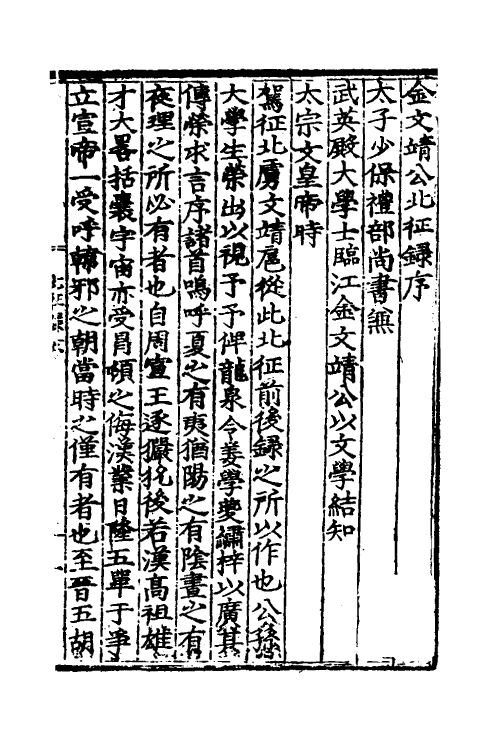 金文靖公北征録序
太子少保禮部尚書無
武英殿大學士臨江金文靖公以文學結知
太宗文皇帝時
駕征北虜文靖扈從此北征前後録之所以作也公孫
大學生榮出以視予予俾龍泉令姜學夔繡梓以廣其
傳榮求言序諸首嗚呼夏之有夷猶陽之有陰晝之有
夜理之所必有者也自周宣王逐玁狁後若漢高祖雄
才大畧括囊宇宙亦受冒頓之侮漢業日隆五單于爭
立宣帝一受呼韓邪之朝當時之僅有者也至晋五胡